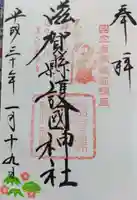 奉拝
滋賀縣護國神社
平成三十年一月十九日